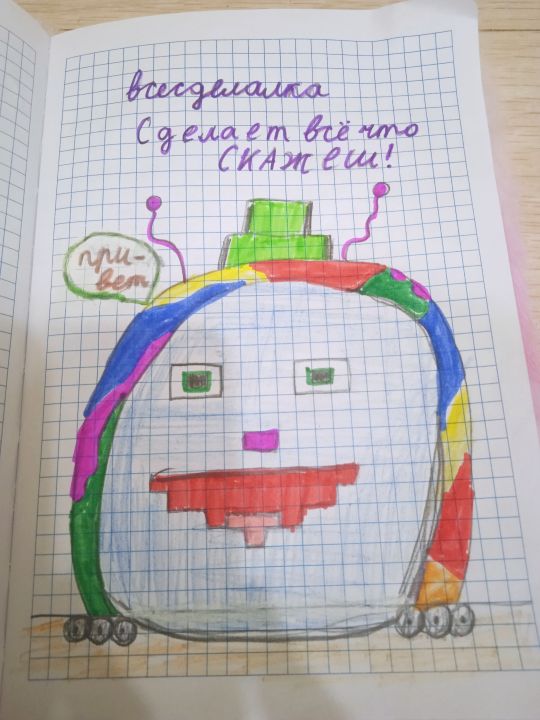 всесделалка
Сделает всё что
СКАЖЕШ!
при-
вет